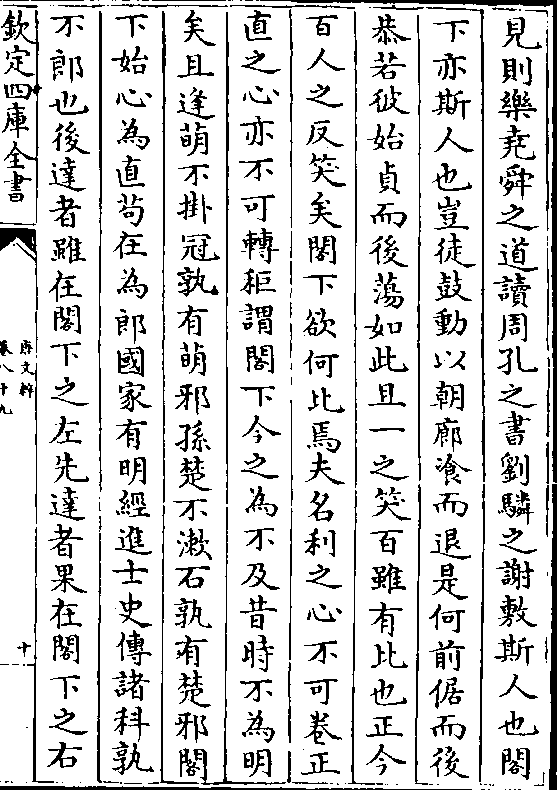 見則樂堯舜之道讀周孔之書劉驎之謝敷斯人也閤
下亦斯人也豈徒鼓動以朝廊飡而退是何前倨而後
恭若彼始貞而後蕩如此且一之笑百雖有比也正今
百人之反笑矣閤下欲何比焉夫名利之心不可卷正
直之心亦不可轉秬謂閤下今之為不及昔時不為明
矣且逢萌不掛冠孰有萌邪孫楚不漱石孰有楚邪閤
下始心為直苟在為郎國家有明經進士史傳諸科孰
不郎也後達者雖在閤下之左先達者果在閤下之右
欽定四庫全書
唐文粹
卷八十九
十